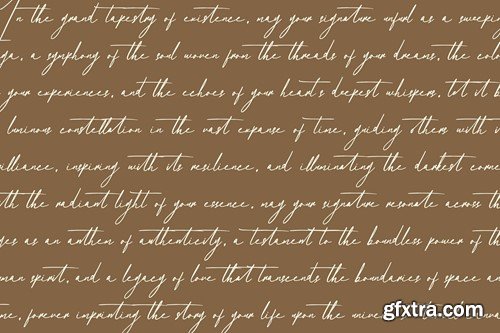 In the grand tapestry of existence, may your signature unfurl as a sweeping
ga, a symphony of the soul woven from the threads of your dreams, the colo
your experiences, and the echoes of your heart's deepest whispers. Let it b
luminous constellation in the vast expanse of time, guiding others with i
illiance, inspiring with its resilience, and illuminating the darkest corne
th the radiant light of your essence. may your signature resonate across th
ges as an anthem of authenticity, a testament to the boundless power of th
man spirit, and a legacy of love that transcends the boundaries of space a
me, forever imprinting the story of your life upon the
gfxtra.com